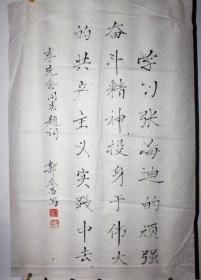 学习张海迪的顽强
奋斗精神，投身于伟大
的共产主义实践中去
李先念同志题词